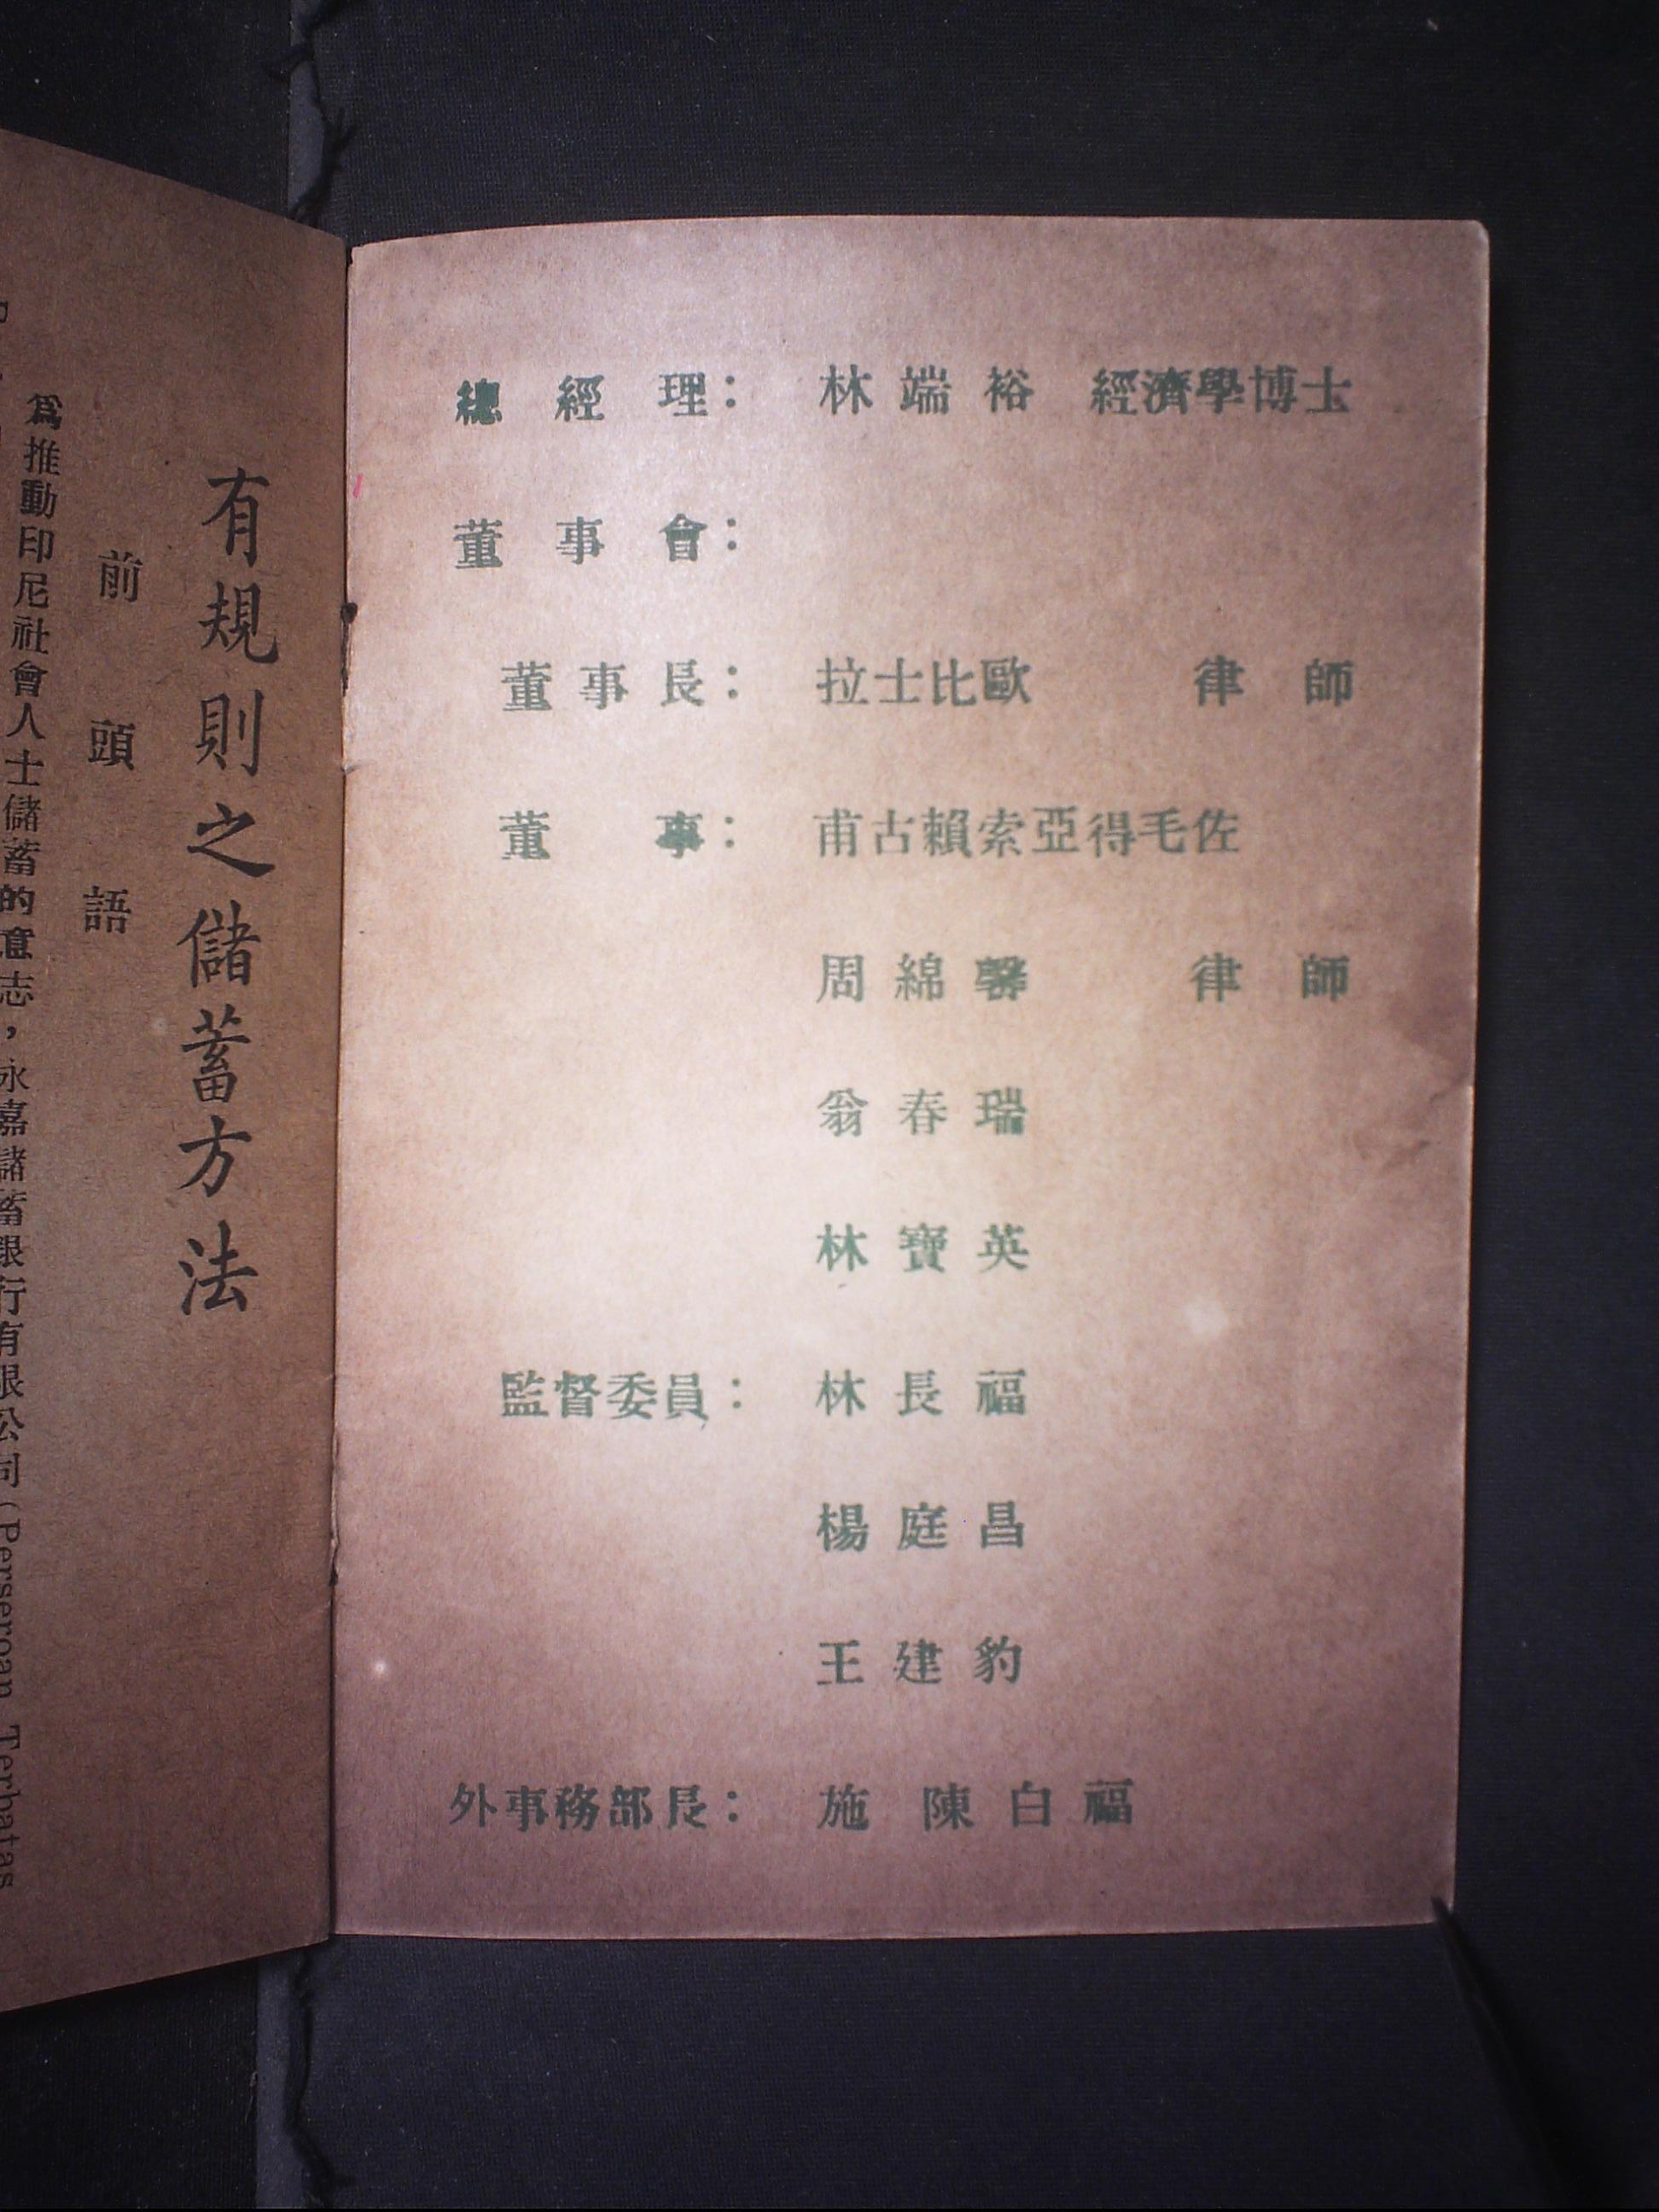 總經理：林端裕 經濟學博士
董事會：
董事長：拉士比歐 律師
董事：甫古賴索亞得毛佐
周綿馨 律師
翁春瑞
林寶英
監督委員：林長福
楊庭昌
王建豹
外事務部長：施陳白福
有規則之儲蓄方法
前頭語
爲推動印尼社會人士儲蓄的意志，永嘉儲蓄銀行有限公司(Perseroan Terbatas